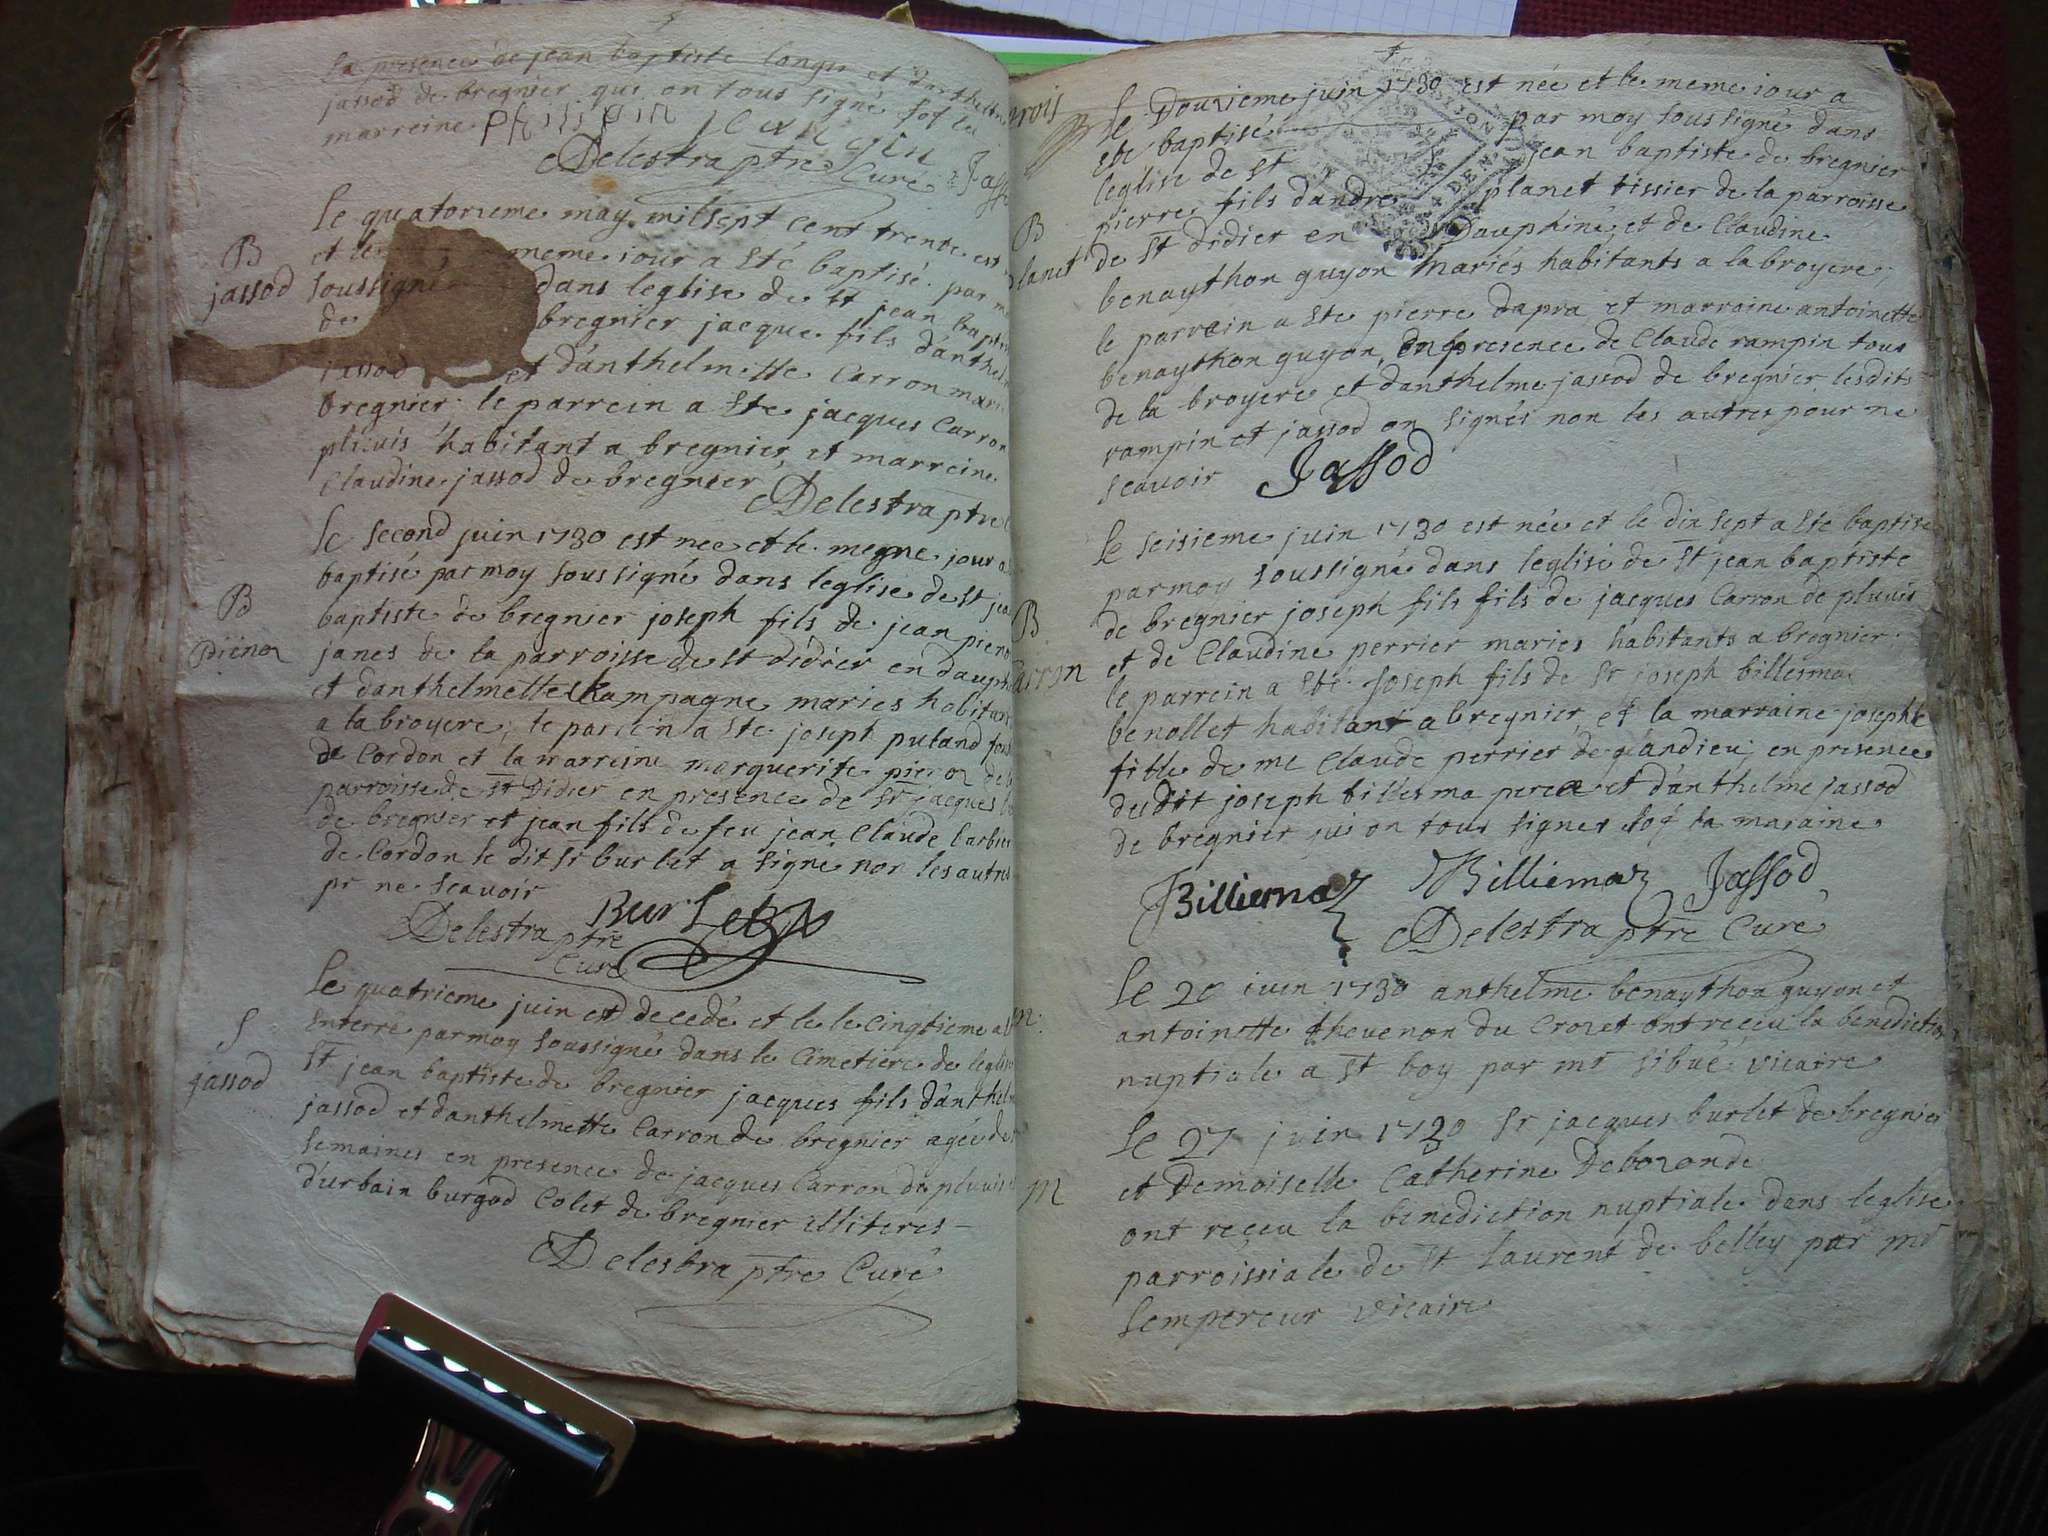 la presence de jean baptiste longis et danthelme
jassod de bregnier qui on tous signé sof la
marreine philipin jean gin
Delestra ptre Curé Jass
B
jassod
Le quatorzieme may mil sept cent trente est
et le meme iour a eté baptisé par
soussigné dans leglise de st jean bapt
de bregnier jacque fils danthel
jassod et danthelmette Carron mari
bregnier le parrein a ete jacques Carron
pluuis habitant a bregnier et marreine
Claudine jassod de bregnier
Delestra ptre
B
pieroz
Le second juin 1730 est née et le mesme jour a
baptisé par moy soussigné dans leglise de st jea
baptiste de bregnier joseph fils de jean piero
janes de la parroisse de st didier en dauph
et danthelmette Champagne maries habitan
a la broyere, le parrein a ete joseph putand
de Cordon et la marreine marguerite pieroz de
parroisse de st didier en presence de sr jacques
de bregnier et jean fils de feu jean Claude barbier
de Cordon le dit sr burlet a signé non les autres
pr ne scauoir
Burlet
Delestra ptre
Curé
S
jassod
Le quatrieme juin est decedé et le le cinqtieme a
enterré par moy soussigné dans le Cimetiere de leglise
st jean baptiste de bregnier jacques fils danthel
jassod et danthelmette Carron de bregnier agé de
semaines en presence de jacques Carron de pluuis
d'urbain burgod Colet de bregnier illiteres
Delestra ptre Curé
B
planet
Le Douzieme juin 1730 est née et le meme iour a
ete baptisé par moy soussigné dans
leglise de st jean baptiste de bregnier
pierre fils dandre planet tissier de la parroisse
de st didier en Dauphiné et de Claudine
benaython guyon mariés habitants a la broyere
le parrein a ete pierre dapra et marraine antoinette
benaython guyon, en presence de Claude rampin tous
de la broyere et danthelme jassod de bregnier lesdits
rampin et jassod on signés non les autres pour ne
scauoir Jassod
B
Carron
Le seisieme juin 1730 est née et le dix sept a eté baptise
par moy soussigné dans leglise de st jean baptiste
de bregnier joseph fils fils de jacques Carron de pluuis
et de Claudine perrier maries habitants a bregnier
le parrein a eté joseph fils de sr joseph billiemaz
benollet habitant a bregnier, et la marraine josephte
fille de me Claude perrier de glandieu, en presence
du dit joseph billiema pere et danthelme jassod
de bregnier qui on tous signes sof la maraine
JBilliemaz Billiemaz Jassod
Delestra ptre Curé
m
Le 20 iuin 1730 anthelme benaython guyon et
antoinette thevenon du Crozet ont receu la benediction
nuptiale a st boy par mr sibué vicaire
m
Le 27 juin 1730 sr jacques burlet de bregnier
et Demoiselle Catherine Debozonde
ont receu la benediction nuptiale dans leglise
parroissiale de st laurent de belley par mr
Lempereur vicaire